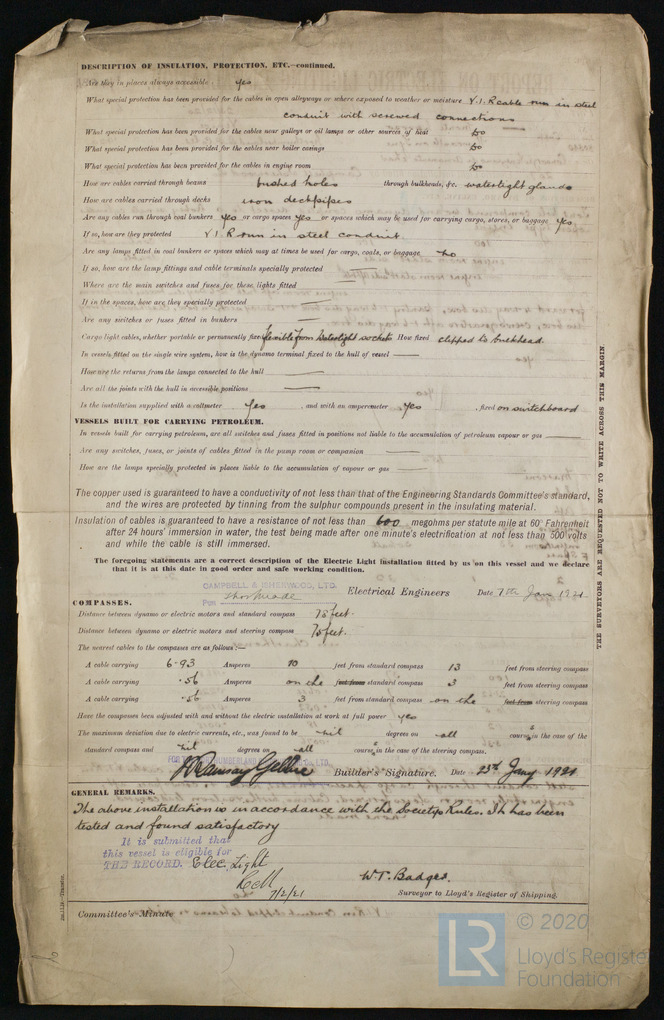 DESCRIPTION OF INSULATION, PROTECTION, ETC.—continued.
Are they in places always accessible yes
What special protection has been provided for the cables in open alleyways or where exposed to weather or moisture V.I.R cable run in steel
conduit with screwed connections
What special protection has been provided for the cables near galleys or oil lamps or other sources of heat do
What special protection has been provided for the cables near boiler casings do
What special protection has been provided for the cables in engine room do
How are cables carried through beams bushed holes through bulkheads, &c. watertight glands
How are cables carried through decks iron deckpipes
Are any cables run through coal bunkers yes or cargo spaces yes or spaces which may be used for carrying cargo, stores, or baggage yes
If so, how are they protected V.I.R run in steel conduit
Are any lamps fitted in coal bunkers or spaces which may at times be used for cargo, coals, or baggage no
If so, how are the lamp fittings and cable terminals specially protected —
Where are the main switches and fuses for these lights fitted —
If in the spaces, how are they specially protected —
Are any switches or fuses fitted in bunkers —
Cargo light cables, whether portable or permanently fixed flexible from watertight sockets How fixed clipped to bulkhead.
In vessels fitted on the single wire system, how is the dynamo terminal fixed to the hull of vessel —
How are the returns from the lamps connected to the hull —
Are all the joints with the hull in accessible positions —
Is the installation supplied with a voltmeter Yes, and with an amperemeter yes, fixed on switchboard
VESSELS BUILT FOR CARRYING PETROLEUM.
In vessels built for carrying petroleum, are all switches and fuses fitted in positions not liable to the accumulation of petroleum vapour or gas —
Are any switches, fuses, or joints of cables fitted in the pump room or companion —
How are the lamps specially protected in places liable to the accumulation of vapour or gas —
The copper used is guaranteed to have a conductivity of not less than that of the Engineering Standards Committee's standard,
and the wires are protected by tinning from the sulphur compounds present in the insulating material.
Insulation of cables is guaranteed to have a resistance of not less than 600 megohms per statute mile at 60° Fahrenheit
after 24 hours' immersion in water, the test being made after one minute's electrification at not less than 500 volts
and while the cable is still immersed.
The foregoing statements are a correct description of the Electric Light installation fitted by us on this vessel and we declare
that it is at this date in good order and safe working condition.
CAMPBELL & ISHERWOOD, LTD.
Electrical Engineers Date 7th Jan 1921
COMPASSES.
Distance between dynamo or electric motors and standard compass 78 feet.
Distance between dynamo or electric motors and steering compass 75 feet.
The nearest cables to the compasses are as follows:—
A cable carrying 6.93 Amperes 10 feet from standard compass 13 feet from steering compass
A cable carrying .56 Amperes on the feet from standard compass 3 feet from steering compass
A cable carrying .56 Amperes 3 feet from standard compass on the feet from steering compass
Have the compasses been adjusted with and without the electric installation at work at full power yes
The maximum deviation due to electric currents, etc., was found to be nil degrees on all courses in the case of the
standard compass and nil degrees on all courses in the case of the steering compass.
Builder's Signature. Date 23rd Jany 1921
GENERAL REMARKS.
The above installation is in accordance with the Society's Rules. It has been
tested and found satisfactory
It is submitted that
this vessel is eligible for
THE RECORD. Elec. Light
7/2/21
W.T. Badger.
Surveyor to Lloyd's Register of Shipping.
Committee's Minute
THE SURVEYORS ARE REQUESTED NOT TO WRITE ACROSS THIS MARGIN
LR
© 2020
Lloyd's Register
Foundation